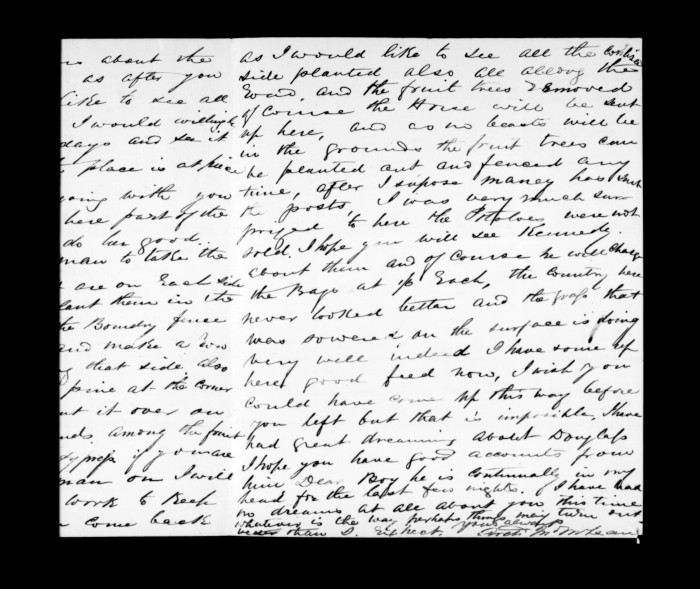 about the
as after you
like to see all
I would willingly
days and see it
place is at pine
going with you
here part of the
do her good.
man to take the
are on Each side
plant them in the
the Boundry fence
and make a Row
that side, also
pine at the corner
it over on
among the fruit
if you are
man on I will
work to Keep
come back
as I would like to see all the
side planted also all along the
Road, and the fruit trees removed
of course the Horse will be sent
up here, and as no beasts will be
in the grounds the fruit trees can
be planted out and fenced any
time, after I supose maney has sent
the posts, I was very much sur
prized to here the Potatoes were not
sold. I hope you will see Kennedy
about them and of course he will charge
the Bags at 1/- Each, the Country here
never looked better and the grass that
was sowered on the surface is doing
very well indeed I have some up
here good feed now, I wish you
could have come up this way before
you left but that is impossible, I have
had great dreaming about Douglass
I hope you have good accounts from
him Dear Boy he is Continually in my
head for the last few nights. I have had
no dreams at all about you this time
whatever is the way perhaps things may turn out
better than I Expect. yours always
McLean